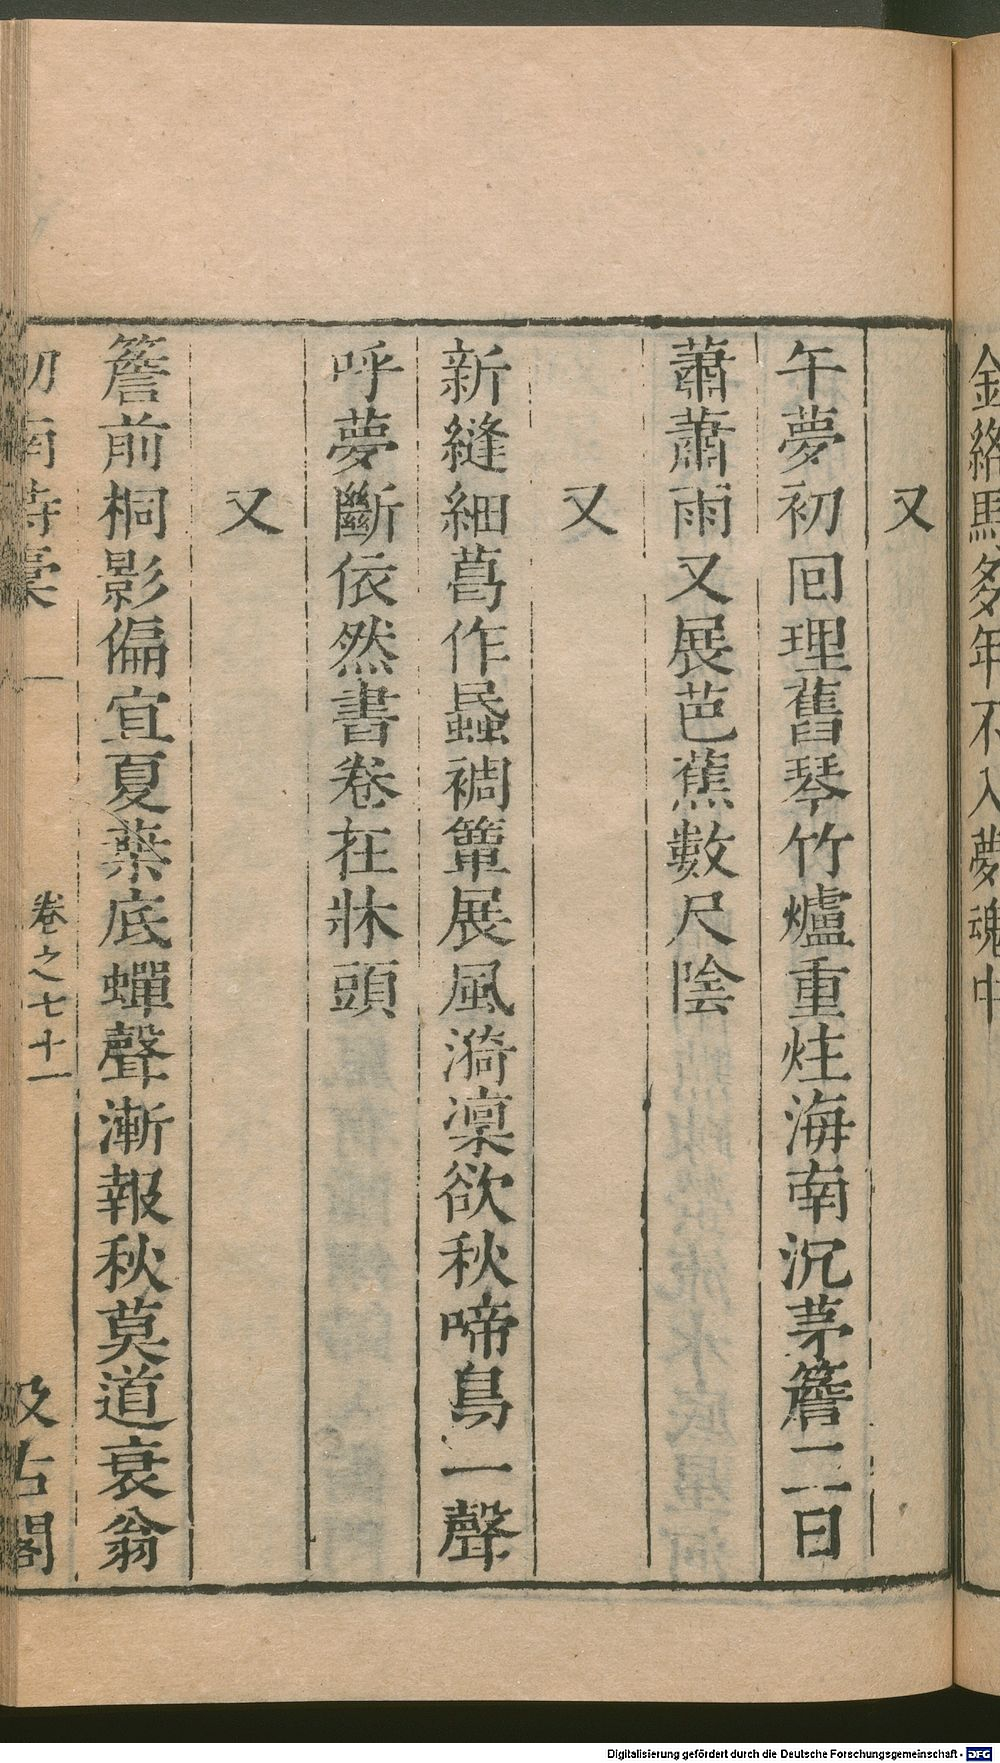 金絡馬多年不入夢魂中
又
午夢初回理舊琴竹爐重炷海南沉茅簷三日
蕭蕭雨又展芭蕉數尺陰
又
新縫細葛作蟁裯簟展風漪凜欲秋啼鳥一聲
呼夢斷依然書卷在牀頭
又
簷前桐影偏宜夏葉底蟬聲漸報秋莫道衰翁
卷之七十一
汲古閣
Digitalisierung gefördert durch die Deutsche Forschungsgemeinschaft - DFG